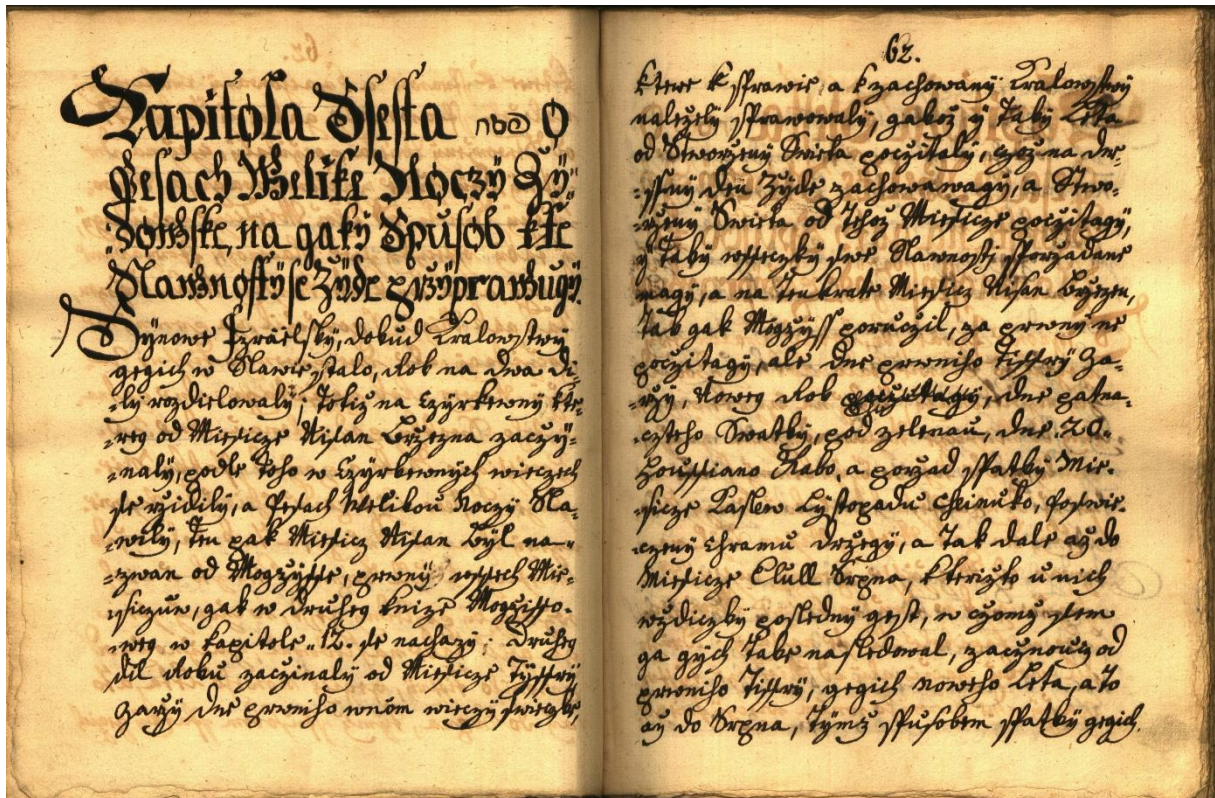 Kapitola Ssesta פסח O
Pesach Welike Noczý Žý„
„dowské, na gaký Spusob kte
Slawnostý se Žýdé przýprawugý.
Sýnowé Izraelsský, dokud Kralowstwý
gegich w Slawie stalo, Rok na dwa di„
„lý rozdielowalý; Totiž na Czýrkewný kte„
„reg od Miesicze Nisan Brzezna zaczý„
„nalý, podle toho w Czýrkewných wieczech
se rzidilý, a Pesach Welikou Noczý Sla„
„wilý, Ten pak Miesicz Nisan býl na„
„zwan od Mogzýsse, prwný wssech Mie„
„siczuw, gak w druheg knize Mogzisso„
„weg w kapitole „12. se nachazý; Druheg
dil Roku zaczinalý od Miesicze Týssrý
Zarzý dne prwniho wnom wieczý swieczke,
62.
ktere k sprawie, a k zachowaný Kralowstwý
naležely sprawowalý, gakož ý Taký Leta
od Stworzený Swieta poczitalý, což na dne„
„ssný den Žýdé zachowawagý, a Stwo„
„rzený Swieta od Tehož Miesicze poczitagý,
ý Taký wsseczký swé Slawnosti sporzadané
magý, a na Tenkrate Miesicz Nisan Brzezen,
Tak gak Mogzýss poruczil, za prwný ne
poczitagý, ale dne prwniho Tissrý Za„
„rzý, Noweg Rok poczitagý, dne patna„
„czteho Swatký, pod zelenau, dne „20„
Houssiano Rabo, a porzad Swatký Mie„
„sicze Kaslew Lýstopadu Cheinuko, Poswie„
„czený Chramu držegý, a Tak dale až do
Miesicze Elull Srpna, kterižto u nich
wždiczký posledný gest, w czomž sem
ga gých také nasledowal, zacznouc od
prwniho Tissrý, gegich nowého Leta, a to
až do Srpna, Týmž spusobem Swatký gegich.